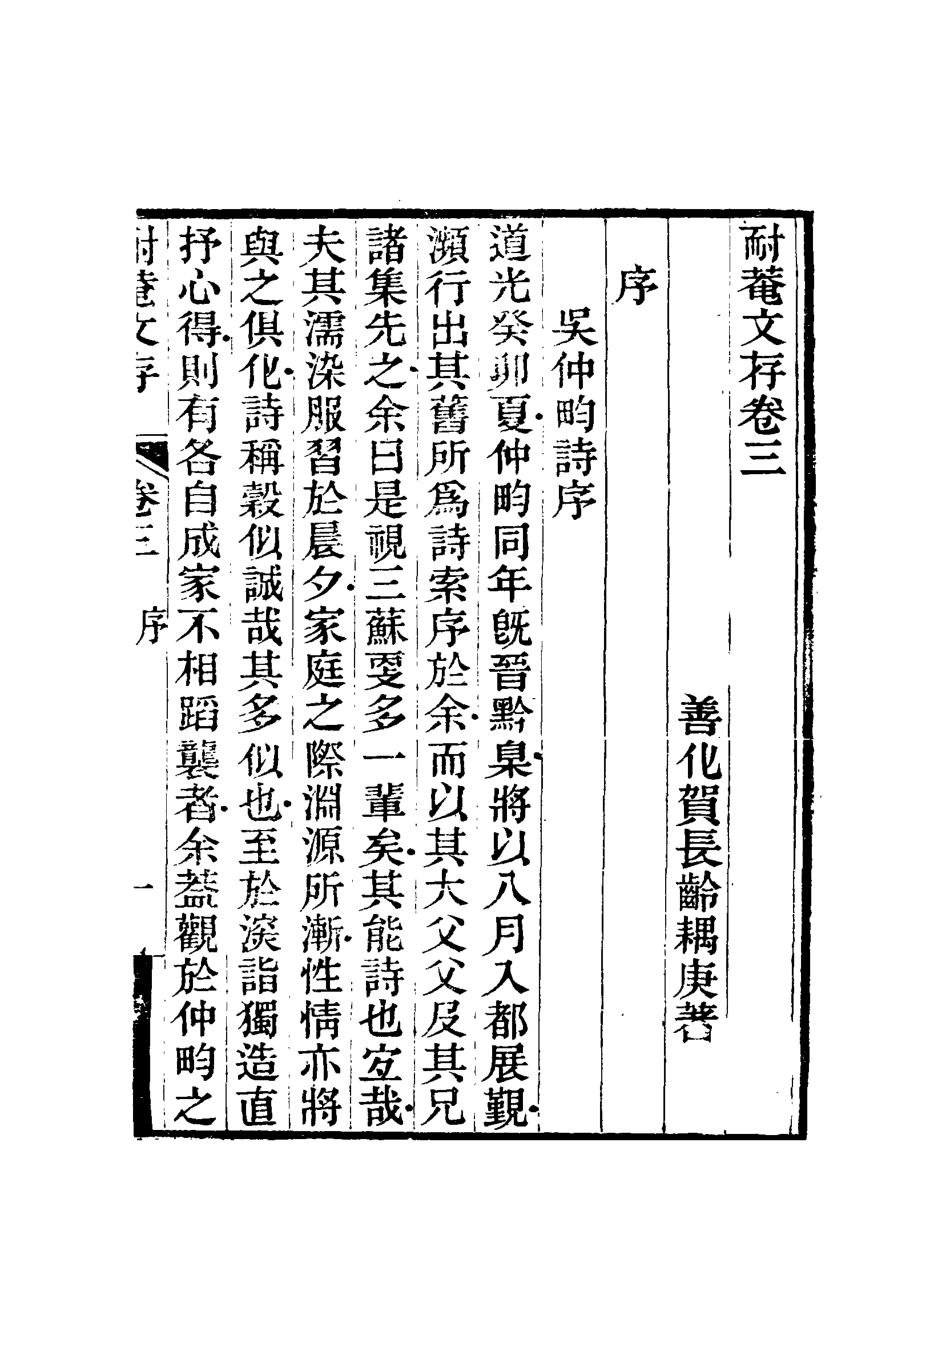 耐菴文存卷三
善化賀長齡耦庚著
序
吳仲畇詩序
道光癸卯夏仲畇同年旣晉黔臬將以八月入都展覲
瀕行出其舊所爲詩索序於余而以其大父父及其兄
諸集先之余曰是視三蘇更多一輩矣其能詩也宐哉
夫其濡染服習於晨夕家庭之際淵源所漸性情亦將
與之俱化詩稱穀似誠哉其多似也至於深詣獨造直
抒心得則有各自成家不相蹈襲者余葢觀於仲畇之
耐菴文存 卷三 序 一